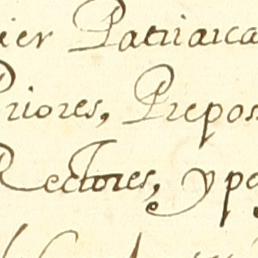 ier Patriarca
Priores, Prepos
Rectores, y pe